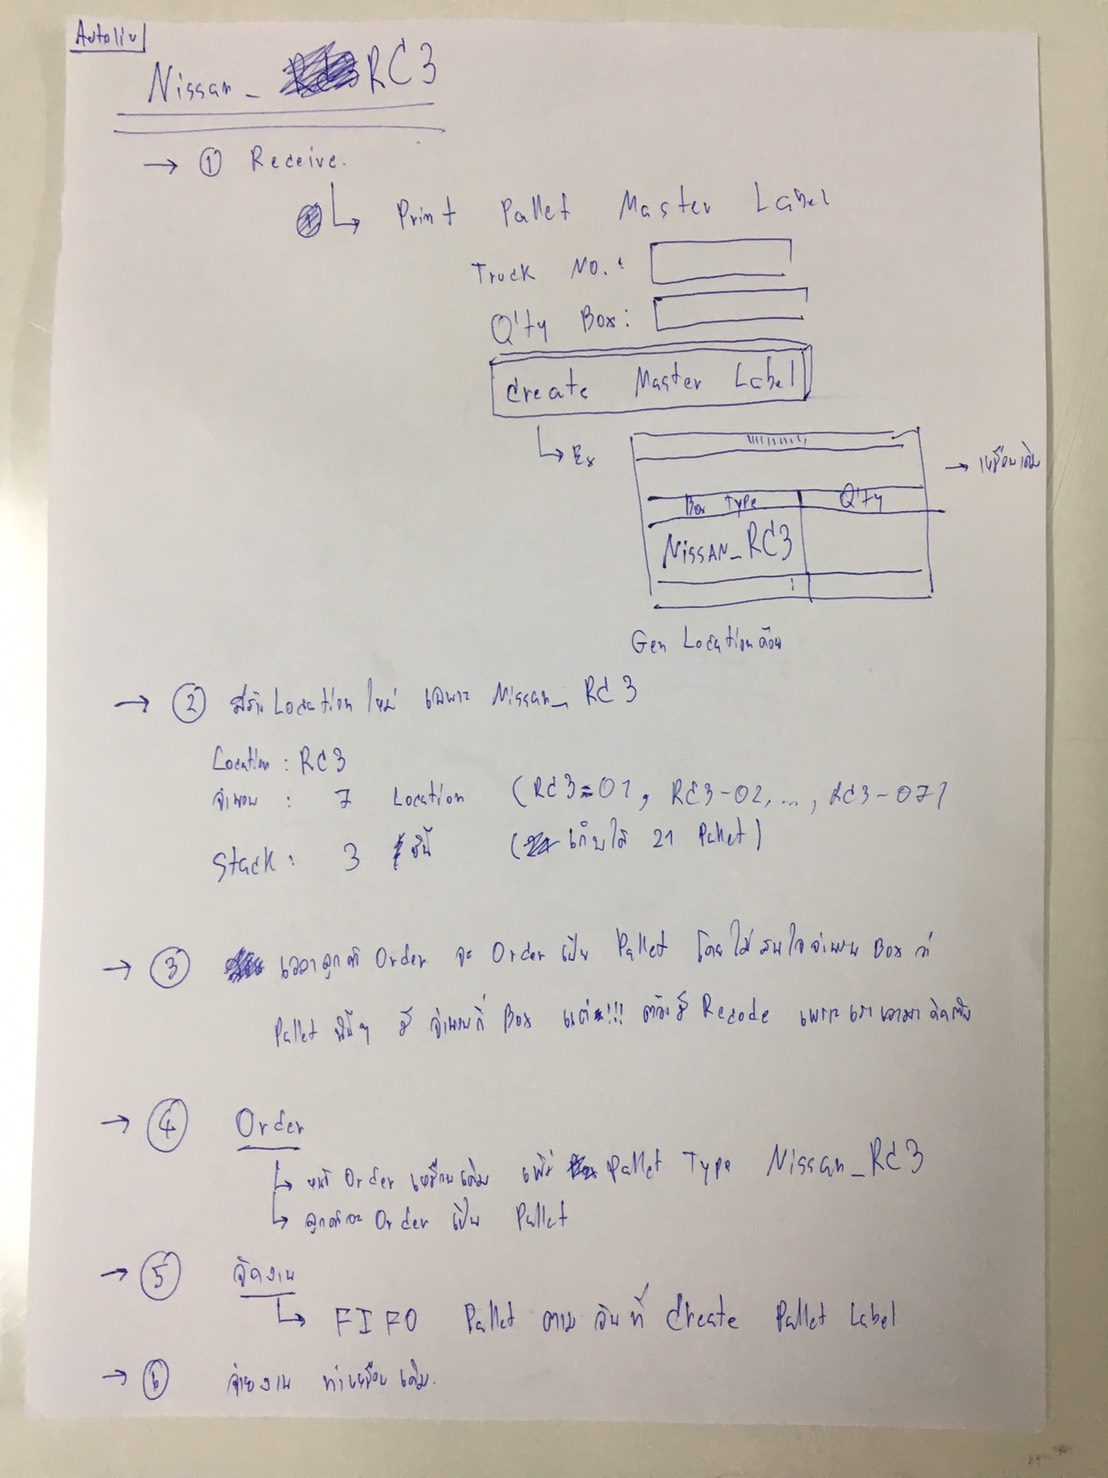 Autoliv
Nissan_ RC3
→ ① Receive.
↳ Print Pallet Master Label
Truck No. :
Q'ty Box :
Create Master Label
↳ Ex
→ เหมือนเดิม
Box Type Q'ty
NISSAN_RC3
Gen Location ด้วย
→ ② สร้าง Location ใหม่ เฉพาะ Nissan_RC3
Location : RC3
จำนวน : 7 Location (RC3-01, RC3-02, ..., RC3-07)
Stack : 3 ชั้น (เก็บได้ 21 Pallet)
→ ③ เวลาลูกค้า Order จะ Order เป็น Pallet โดยไม่สนใจจำนวน Box ว่า
Pallet นั้นๆ มี จำนวนกี่ Box แต่!!! ต้องมี Recode เพราะเราเอามาคิดเงิน
→ ④ Order
↳ หน้า Order เหมือนเดิม เพิ่ม Pallet Type Nissan_RC3
↳ ลูกค้าจะ Order เป็น Pallet
→ ⑤ จัดงาน
↳ FIFO Pallet ตาม วันที่ Create Pallet Label
→ ⑥ จ่ายงาน ทำเหมือนเดิม.